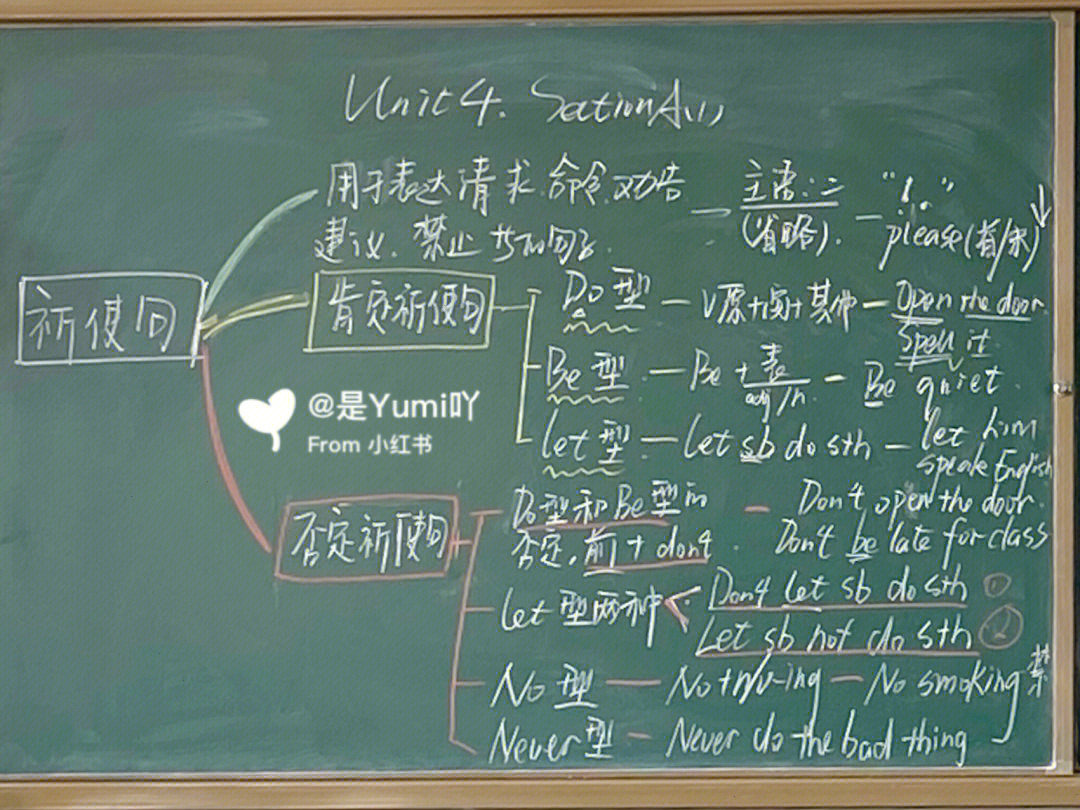 Unit 4. SectionA(1)
用于表达请求.命令.劝告
建议、禁止 的句子.
主语:二
(省略).
"!."
please(首/末)
祈使句
肯定祈使句
Do型 — V原+宾+其他 — Open the door.
Spell it.
Be型 — Be +表 — Be quiet.
adj/n.
let型 — Let sb do sth — let him
speak English
否定祈使句
Do型和Be型的 — Don't open the door.
否定,前+don't. Don't be late for class
let型两种 Don't let sb do sth ①
Let sb not do sth ②
No型 — No+n/v-ing — No smoking 禁
Never型 — Never do the bad thing
@是Yumi吖
From 小红书